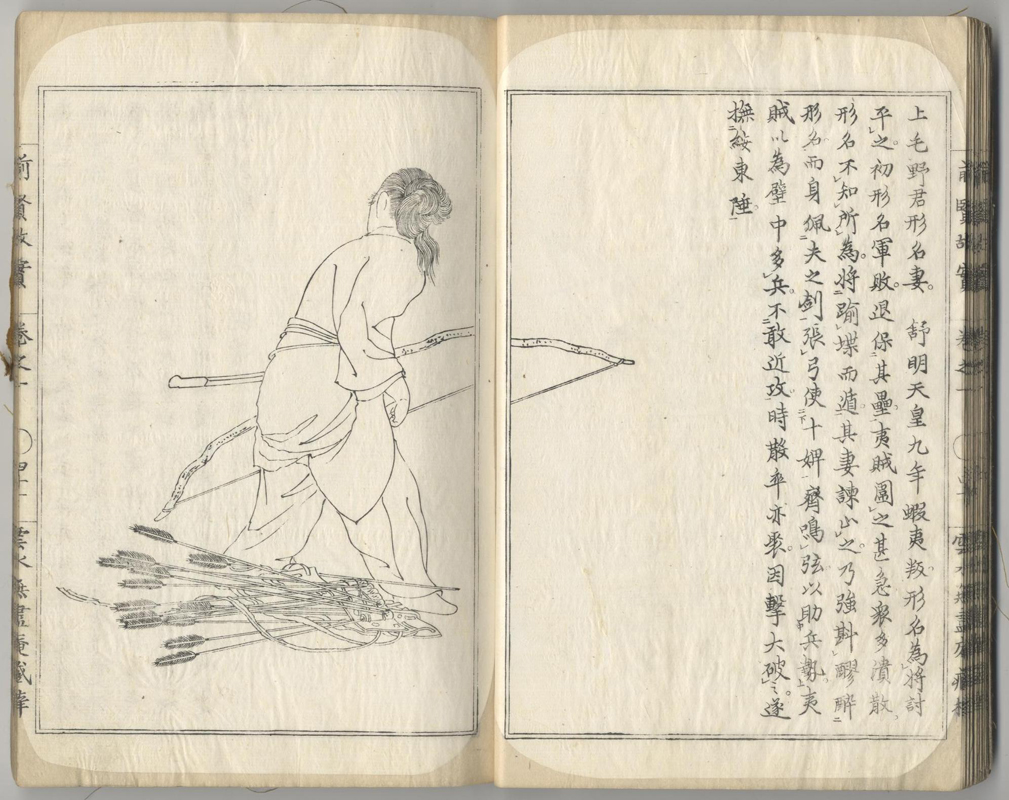 上毛野君形名妻 舒明天皇九年蝦夷叛形名為將討
平之初形名軍敗退保其壘夷賊圍之甚急衆多潰散
形名不知所為將踰堞而遁其妻諫止之乃強斟醪醉
形名而身佩夫之劍張弓使十婢齊鳴弦以助兵勢夷
賊以為壁中多兵不敢近攻時散卒亦来因擊大破之遂
撫綏東陲
前賢故實 卷之一